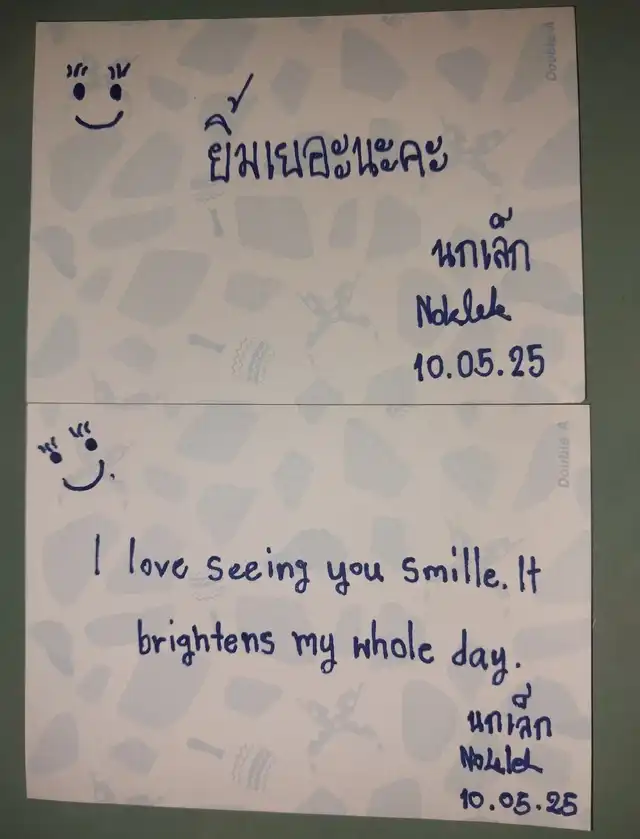 Double A
ยิ้มเยอะนะคะ
นกเล็ก
Noklek
10.05.25
Double A
I love seeing you smille. It
brightens my whole day.
นกเล็ก
Noklek
10.05.25